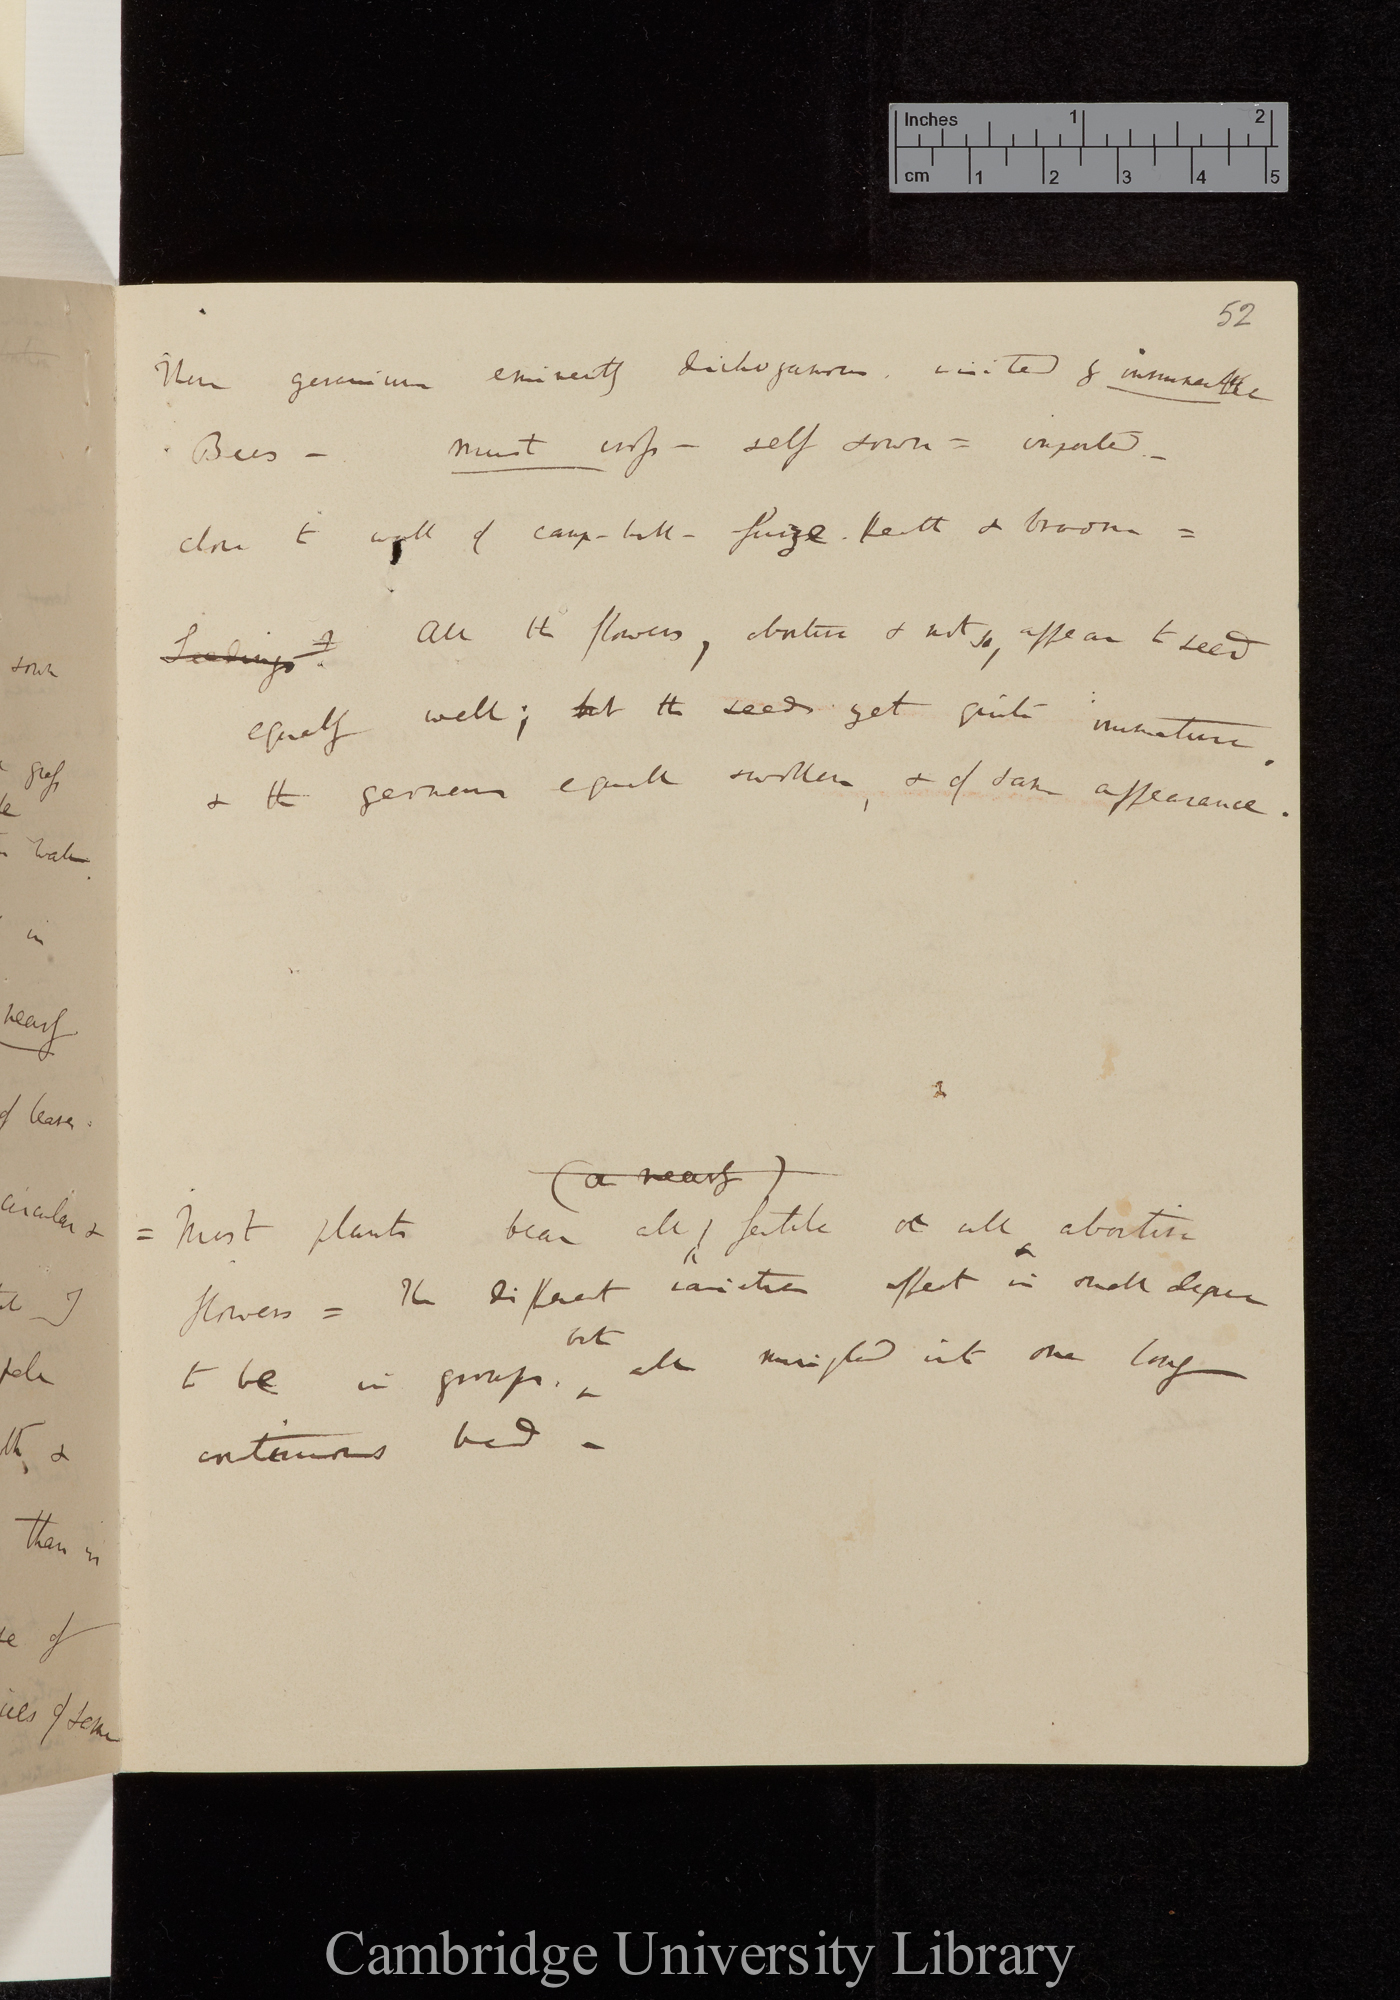 Inches 1 2
cm 1 2 3 4 5
52
These geranium eminently dichogamous. visited by innumerable
Bees — must cross — self sown = imported. —
close to wall of camp - furze. Heath & broom =
Seedlings? All the flowers, abortive & not so, appear to seed
equally well; but the seeds yet quite immature.
& the germens equally swollen, & of same appearance.
(or nearly)
= Most plants bear all, fertile or all abortive
flowers = The different varieties affect in small degree
to be in groups. but all mingled into one long
continuous bed —
sown
grass
water
in
nearly
of leaves.
circular &
I
&
than in
of
of same
Cambridge University Library